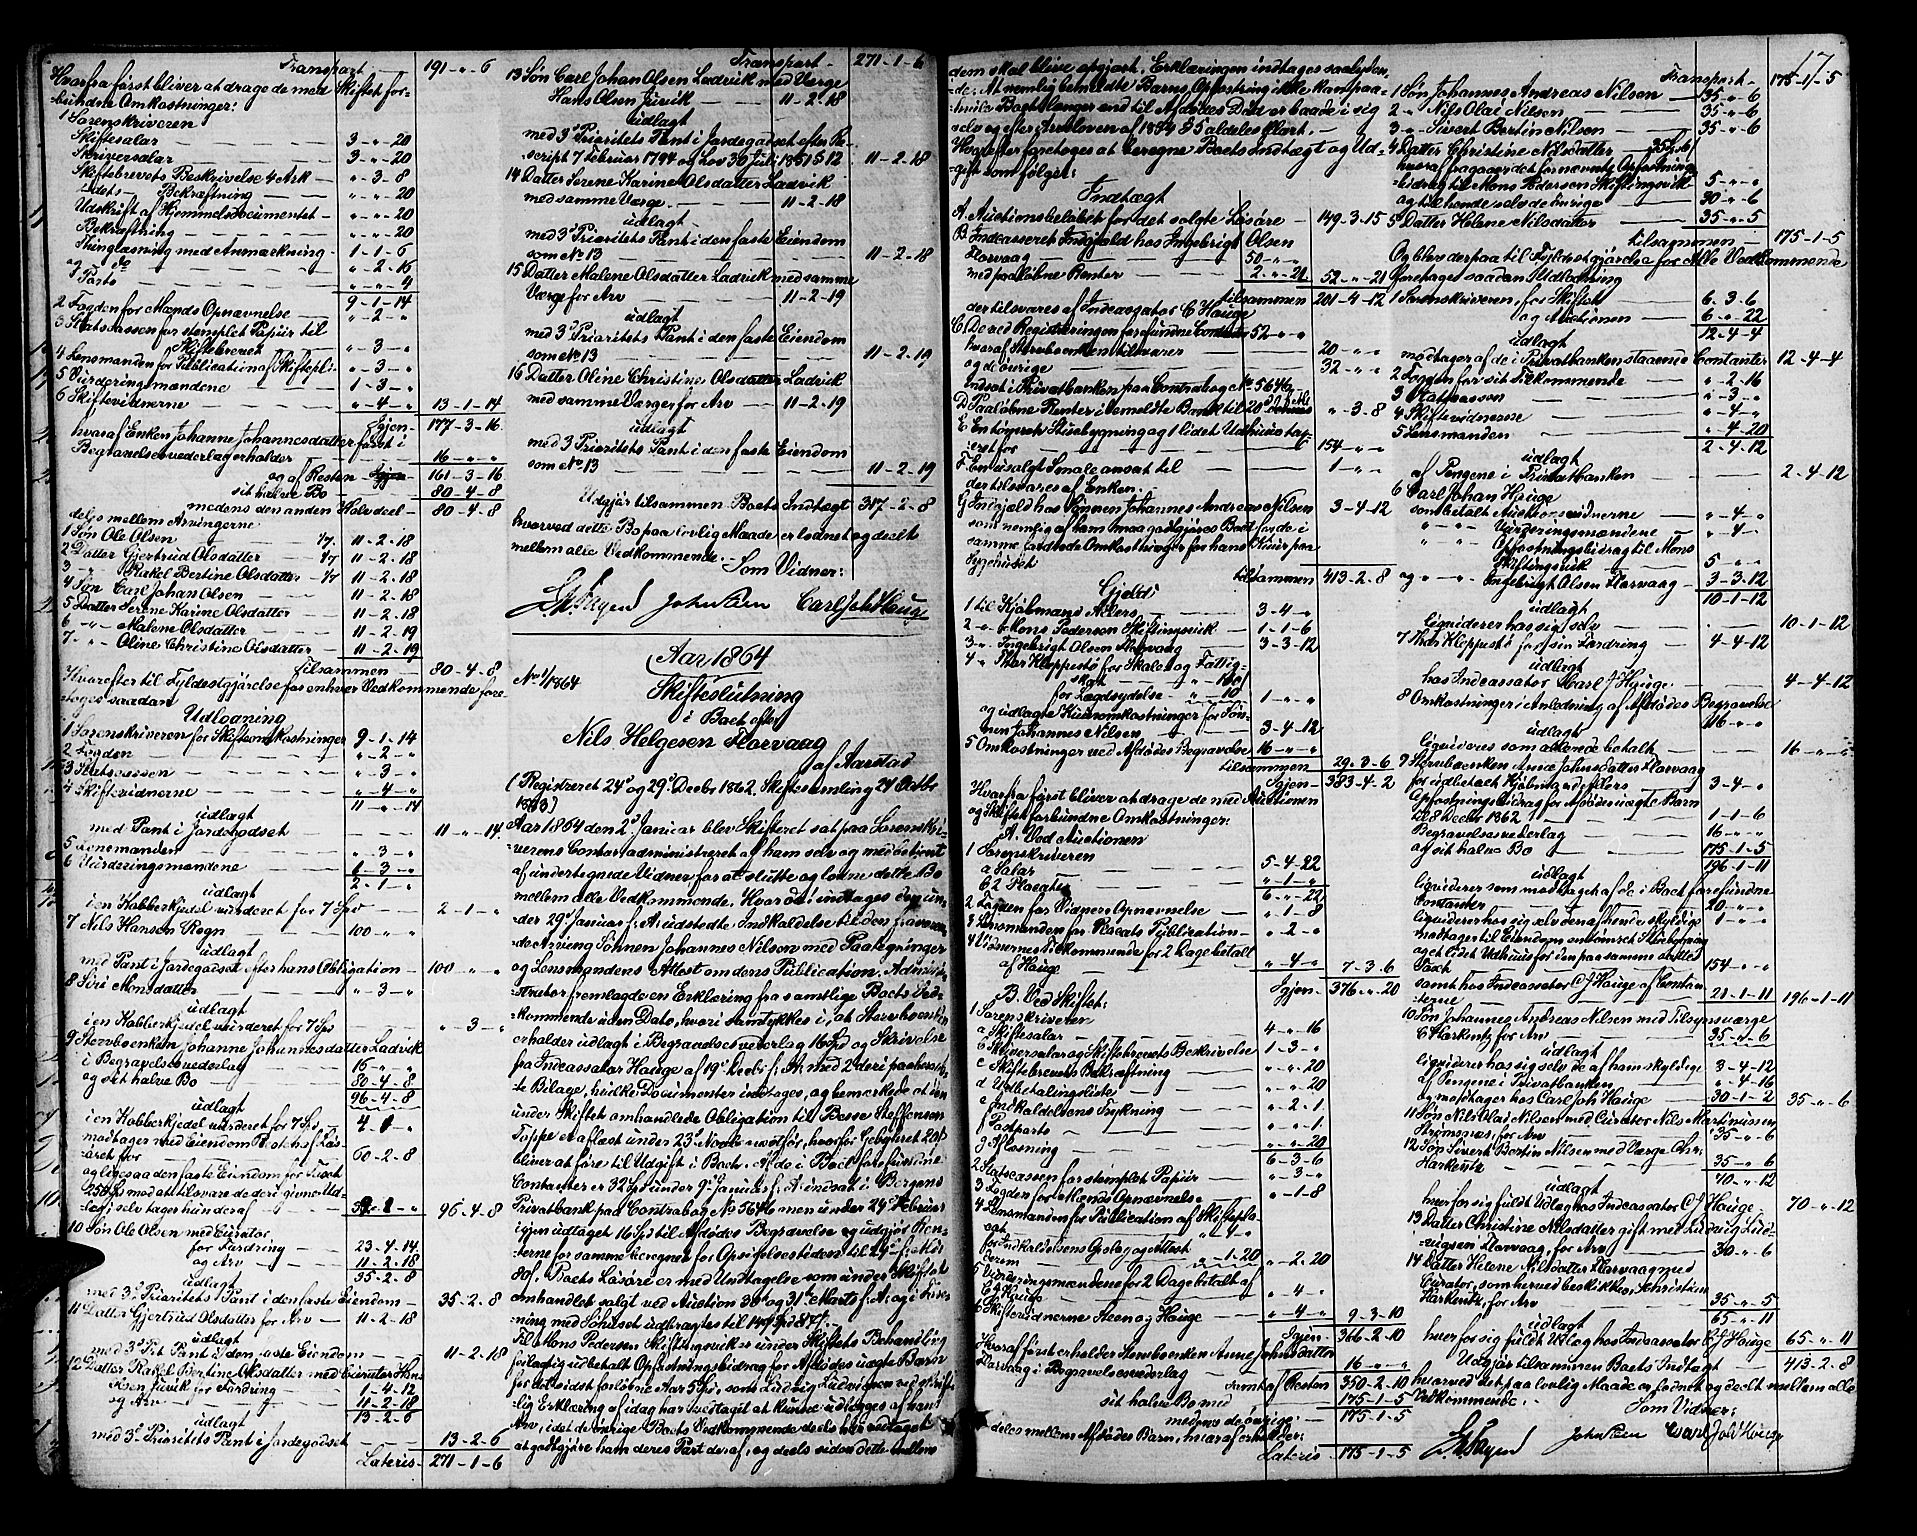 Transport - 191 - „ - 6
Hvorfra først bliver at drage de med Skiftet for-
bundne Omkostninger:
1 Sorenskriveren
Skiftesalær 3 - „ - 20
Skriversalær 3 - „ - 20
Skiftebrevets Beskrivelse 4 Ark „ - 3 - 8
idets Bekræftning „ - „ - 20
Udskrift af Hjemmelsdocumentet „ - „ - 20
Bekræftning „ - „ - 20
Thinglæsning med Anmærkning 1 - 1 - 6
„ - 2 - 16
Porto „ - „ - 4
9 - 1 - 14
2 Fogden for Mænds Opnævnelse „ - 2 - „
3 Statscassen for stemplet Papiir til
Skiftebrevet „ - 3 - „
4 Lensmanden for Publication af Skiftepl. „ - 3 - „
5 Vurderingsmændene 1 - 3 - „
6 Skiftevidnerne „ - 4 - „ 13 - 1 - 14
Igjen 177 - 3 - 16
hvoraf Enken Johanne Johannesdatter først i
Begravelsesvederlag erholder 16 - „ - „
og af Resten 161 - 3 - 16
sit halve Bo 80 - 4 - 8
medens den anden Halvdeel 80 - 4 - 8
deles mellem Arvingerne
1 Søn Ole Olsen 11 - 2 - 18
2 Datter Gjertrud Olsdatter 11 - 2 - 18
3 „ Rakel Bertine Olsdatter 11 - 2 - 18
4 Søn Carl Johan Olsen 11 - 2 - 18
5 Datter Serene Karine Olsdatter 11 - 2 - 18
6 „ Malene Olsdatter 11 - 2 - 19
7 „ Oline Christine Olsdatter 11 - 2 - 19
Tilsammen 80 - 4 - 8
Hvorefter til Fyldestgjørelse for enhver Vedkommende fore-
toges saadan
Udlodning
1 Sorenskriveren for Skifteomkostninger 9 - 1 - 14
2 Fogden „ - 2 - „
3 Statscassen „ - 3 - „
4 Skiftevidnerne „ - 4 - „
11 - „ - 14
udlagt
med Pant i Jordegodset 11 - „ - 14
5 Lensmanden „ - 3 - „
6 Vurderingsmændene 1 - 3 - „
2 - 1 - „
udlagt
i en Kobberkjedel vurderet for 7 Spd 2 - 1 - „
7 Nils Hansen Rogn 100 - „ - „
udlagt
med Pant i Jordegodset efter hans Obligation 100 - „ - „
8 Siri Monsdatter „ - 3 - „
udlagt
i en Kobberkjedel vurderet for 7 Spd „ - 3 - „
9 Stervboenken Johanne Johannesdatter Ladvik
i Begravelsesvederlag 16 - „ - „
og sit halve Bo 80 - 4 - 8
96 - 4 - 8
udlagt
i en Kobberkjedel vurderet for 7 Spd,
modtager med Eiendom Boets Løs-
øret for 60 - 2 - 8
96 - 4 - 8
10 Søn Ole Olsen med Curator,
for Fordring 23 - 4 - 14
og Arv 11 - 2 - 18
35 - 2 - 8
udlagt
med 3die Prioritets Pant i den faste Eiendom 35 - 2 - 8
11 Datter Gjertrud Olsdatter for Arv 11 - 2 - 18
udlagt
med 3die Prit Pant i den faste Eiendom 11 - 2 - 18
12 Datter Rakel Bertine Olsdatter med Curator Hans
Olsen Jirvik for Fordring 1 - 4 - 12
og Arv 11 - 2 - 18
13 - 2 - 6
udlagt
med 3die Prioritets Pant i Jordegodset 13 - 2 - 6
Lateris 271 - 1 - 6
Transport 271 - 1 - 6
13 Søn Carl Johan Olsen Ladvik med Værge
Hans Olsen Jirvik 11 - 2 - 18
udlagt
med 3die Prioritets Pant i Jordegodset efter Re-
script 7 februar 1794 og Lov 30 Juli 1851 § 12 11 - 2 - 18
14 Datter Serene Karine Olsdatter Ladvik
med samme Værge 11 - 2 - 18
udlagt
med 3die Prioritets Pant i den faste Eiendom
som No 13 11 - 2 - 18
15 Datter Malene Olsdatter Ladvik med samme
Værge for Arv 11 - 2 - 19
udlagt
med 3die Prioritets Pant i den faste Eiendom
som No 13 11 - 2 - 19
16 Datter Oline Christine Olsdatter Ladvik
med samme Værge for Arv 11 - 2 - 19
udlagt
med 3 Prioritets Pant i den faste Eiendom
som No 13 11 - 2 - 19
Udgjør tilsammen Boets Indtægt 317 - 2 - 8
hvorved dette Bo paa lovlig Maade er lodnet og deelt
mellem alle Vedkommende. Som Vidner:
Carl Joh Hauge
Aar 1864
No 1/1864 Skifteslutning
i Boet efter
Nils Helgesen Florvaag
af Aarstad
(Registreret 24de og 29de Decbr 1862. Skiftesamling 24 Octbr
1863)
Aar 1864 den 2den Januar blev Skifteret sat paa Sorenskri-
verens Contor, administreret af ham selv og med betjent
af undertegnede Vidner for at slutte og lodne dette Bo
mellem alle Vedkommende. Hvorda indtages den un-
der 29de Januar f. A. udstedte Indkaldelse til den fraværen-
de Arving Sønnen Johannes Nilsen med Paategninger
og Lensmandens Attest om dens Publication. Admini-
strator fremlagde en Erklæring fra samtlige Boets Ved-
kommende uden Dato, hvori samtykkes i, at Stervboenken
erholder udlagt i Begravelsesvederlag 16 Spd og Skrivelse
fra Indcassator Hauge af 19de Decbr f. A. med 2 deri paaberaab-
te Bilage, hvilke Documenter indtages, og bemærkede at den
under Skiftet omhandlede Obligation til Børse Steffensen
Toppe er aflæst under 23de Novbr
bliver at føre til Udgift i Boet. Af de i Boet forefundne
Contanter er 32 Spd under 9de Januar f. A. indsat i Bergens
Privatbank paa Contrabog No 5646 men under 24de Februar
igjen udtaget 16 Spd til Afdødes Begravelse og udgjør Ren-
terne for samme beregnet for Opsigelsestiden til
Boets Løsøre er med Undtagelse som under Skiftet
omhandlet solgt ved Auction 30te og 31te Marts f. A. og i Hen-
Til Mons Pedersen Skiftingsvik er under Skiftets Behandling
forlagtig udbetalt Opfostringsbidrag for Afdødes uægte Barn
for det sidst forløbne Aar 5 Spd, som Ludvig Ludvigsen ved skrift-
lig Erklæring af idag har vedtaget at kunne udlægges af hans
Arv, idet de øvrige i Boets Vedkommende deels har vedtaget
at godtgjøre ham deres Part deraf, og deels siden dette mellem
17
dem skal blive opgjort. Erklæringen indtages saalyden-
de: At nemlig bemeldte Barns Opfostring ikke kan paa-
hvile Boet længer end til Afdødes Død er baade i sig
selv og efter Arveloven af 1854 § 5 aldeles klart.
Hvorefter foretoges at beregne Boets Indtægt og Ud-
gift som følger:
Indtægt
A. Auctionsbeløbet for det solgte Løsøre 149 - 3 - 15
B. Indcasseret Indgjæld hos Ingebrigt Olsen
Florvaag 50 - „ - „
med paaløbne Renter 2 - „ - 21 52 - „ - 21
tilsammen 201 - 4 - 12
der tilsvares af Indcassator C Hauge
C. De ved Registreringen forefundne Contanter 52 - „ - „
hvoraf Stervboenken tilsvarer 20 - „ - „
og de øvrige 32 - „ - „
indsat i Privatbanken paa Contrabog No 5646
D. Paaløbne Renter i bemeldte Bank til „ - 3 - 8
E. En tømret Stuebygning og 1 lidet Udhuus tax-
eret for 154 - „ - „
F. En usolgt Smale ansat til 1 - „ - „
der tilsvares af Enken.
G. Indgjæld hos Sønnen Johannes Andreas Nilsen 3 - 4 - 12
som nemlig af ham maa godtgjøres Boet for de i
samme førte Omkostninger for hans Kuur paa
Sygehuset
tilsammen 413 - 2 - 8
Gjeld:
1 til Kjøbmand Ahlers 3 - 4 - „
2 „ Mons Pedersen Skiftingsvik 1 - 1 - 6
3 „ Ingebrigt Olsen Florvaag 3 - 3 - 12
4 „ Thor Kleppestø for Skole og Fattig-
skat
for Lægdsydelse „ - „ - 10 1 - „ - „
og udlagte Kuuromkostninger for Søn-
nen Johannes Nilsen 3 - 4 - 12
5 Omkostninger ved Afdødes Begravelse 16 - „ - „
tilsammen 29 - 3 - 6
Igjen 383 - 4 - 2
Hvorfra først bliver at drage de med Auctionen
og Skiftet forbundne Omkostninger:
A. Ved Auctionen
1 Sorenskriveren
a Salær 5 - 4 - 22
b 2 Placater „ - 1 - „
6 - „ - 22
2 Fogden for Vidners Opnævnelse „ - 1 - 8
3 Lensmanden for Placats Publication „ - 2 - „
4 Vidnernes Tilkommende for 2 Dage betalt
af Hauge „ - 4 - „ 7 - 3 - 6
Igjen 376 - „ - 20
B. Ved Skiftet:
1 Sorenskriveren
a Skiftesalær 4 - „ - 16
b Skriversalær og Skiftebrevets Beskrivelse 1 - 3 - „
c Skiftebrevets Bekræftning „ - „ - 20
d Udbetalingsliste „ - „ - 20
e Indkaldelsens Trykning „ - 2 - 1
f Postporto „ - „ - 1
g Aflæsning „ - „ - 20
6 - 3 - 6
2 Statscassen for stemplet Papiir „ - 3 - „
3 Fogden for Mænds Opnævnelse „ - 1 - 8
4 Lensmanden for Publication af Skiftepla-
cat „ - 4 - „
for Indkaldelsens Opslag og Attest
derom „ - 1 - 20 „ - 2 - 20
5 Vurderingsmændene for 2 Dage betalt af
C J Hauge „ - 4 - „
6 Skiftevidnerne Steen og Hauge „ - 4 - „ 9 - 3 - 10
Igjen 366 - 2 - 10
Hvoraf først erholder Stervboenken Anne Johnsdatter
Florvaag i Begravelsesvederlag 16 - „ - „
samt af Resten 350 - 2 - 10
sit halve Bo med 175 - 1 - 5
medens de øvrige 175 - 1 - 5
deles mellem Afdødes Børn, hvoraf erholder:
Lateris 175 - 1 - 5
Transport 175 - 1 - 5
1 Søn Johannes Andreas Nilsen 35 - „ - 6
2 „ Nils Olai Nilsen 35 - „ - 6
3 „ Sivert Bertin Nilsen 35 - „ - 6
4 Datter Christine Nilsdatter 35 „ 6
hvoraf fragaaer det fornævnte Opfostrings-
bidrag til Mons Pedersen Skiftingsvik 5 - „ - „
og til hende selv de øvrige 30 - „ - 6
5 Datter Helene Nilsdatter 35 - „ - 5
tilsammen 175 - 1 - 5
Og blev derpaa til Fyldestgjørelse for Alle Vedkommende
foretaget saadan Udlodning
1 Sorenskriveren, for Skiftet 6 - 3 - 6
og Auctionen 6 - „ - 22
12 - 4 - 4
udlagt
modtager af de i Privatbanken staaende Contanter 12 - 4 - 4
2 Fogden for sit Tilkommende „ - 2 - 16
3 Statscassen „ - 3 - „
4 Skiftevidnerne „ - 4 - „
5 Lensmanden „ - 4 - 20
2 - 4 - 12
udlagt
af Pengene i Privatbanken 2 - 4 - 12
6 Carl Johan Hauge
som betalt Auctionsvidnerne „ - 4 - „
„ „ Vurderingsmændene „ - 4 - „
„ „ Opfostringsbidrag til Mons
Skiftingsvik 5 - „ - „
og „ Ingebrigt Olsen Florvaag 3 - 3 - 12
10 - 1 - 12
udlagt
liqviderer hos sig selv 10 - 1 - 12
7 Thor Kleppestø for sin Fordring 4 - 4 - 12
udlagt
hos Indcassator Carl J Hauge 4 - 4 - 12
8 Omkostninger i Anledning af Afdødes Begravelse
16 - „ - „
udlagt
liqvideres som allerede betalt 16 - „ - „
9 Stervboenken Anne Johnsdatter Florvaag
for udbetalt Kjøbmand Ahlers 3 - 4 - „
Opfostringsbidrag for Afdødes uægte Barn
til 8 Decbr 1862 1 - 1 - 6
Begravelsesvederlag 16 - „ - „
og sit halve Bo 175 - 1 - 5
196 - 1 - 11
udlagt
liqviderer som modtaget af de i Boet forefundne
Contanter 20 - „ - „
liqviderer hos sig selv den af hende skyldige 1 - „ - „
modtager til Eiendom en tømret Stuebygning
og et lidet Udhuus for den paa samme satte
Taxt 154 - „ - „
samt hos Indcassator C J Hauge af Contan-
terne 21 - 1 - 11 196 - 1 - 11
10 Søn Johannes Andreas Nilsen med Tilsynsværge
C Harkentz, for Arv 35 - „ - 6
udlagt
liqviderer hos sig selv de af ham skyldige 3 - 4 - 12
af Pengene i Privatbanken „ - 4 - 16
og modtager hos Carl Joh Hauge 30 - 1 - 2 35 - „ - 6
11 Søn Nils Olai Nilsen med Curator Nils Martinussen
Strømsnæs, for Arv 35 - „ - 6
12 Søn Sivert Bertin Nilsen med Værge Chr.
Harkentz 35 - „ - 6
70 - „ - 12
udlagt
hver for sig fuldt Udlæg hos Indcassator C J Hauge 70 - „ - 12
13 Datter Christine Nilsdatter gift med Ludvig Lud-
vigsen Florvaag, for Arv 30 - „ - 6
14 Datter Helene Nilsdatter Florvaag med
Curator, som herved beskikkes Christian
Harkentz, for Arv 35 - „ - 5
65 - „ - 11
udlagt
hver for sig fuldt Udlæg hos Indcassator C J Hauge 65 - „ - 11
Udgjør tilsammen Boets Indtægt 413 - 2 - 8
hvorved det paa lovlig Maade er lodnet og deelt mellem alle
Vedkommende. Som Vidner:
Carl Joh Hauge